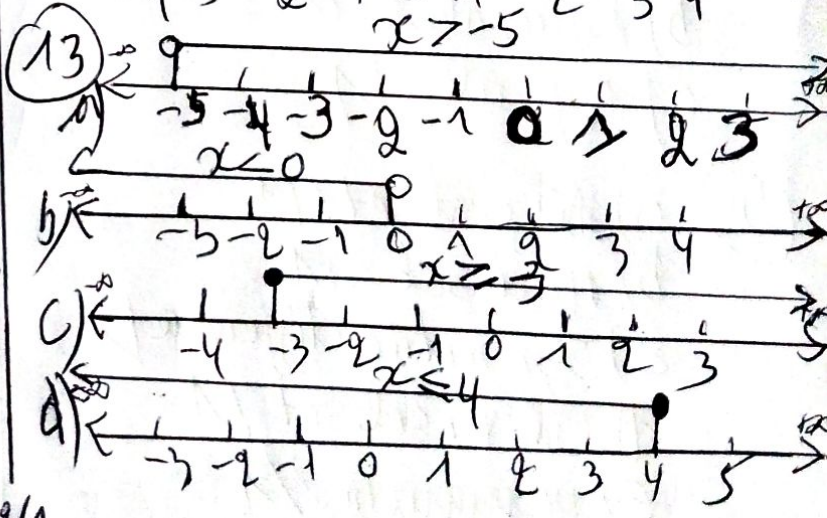 13
x > -5
a) -∞ -5 -4 -3 -2 -1 0 1 2 3 +∞
x < 0
b) -∞ -3 -2 -1 0 1 2 3 4 +∞
x ≥ -3
c) -∞ -4 -3 -2 -1 0 1 2 3 +∞
x ≤ 4
d) -∞ -3 -2 -1 0 1 2 3 4 5 +∞